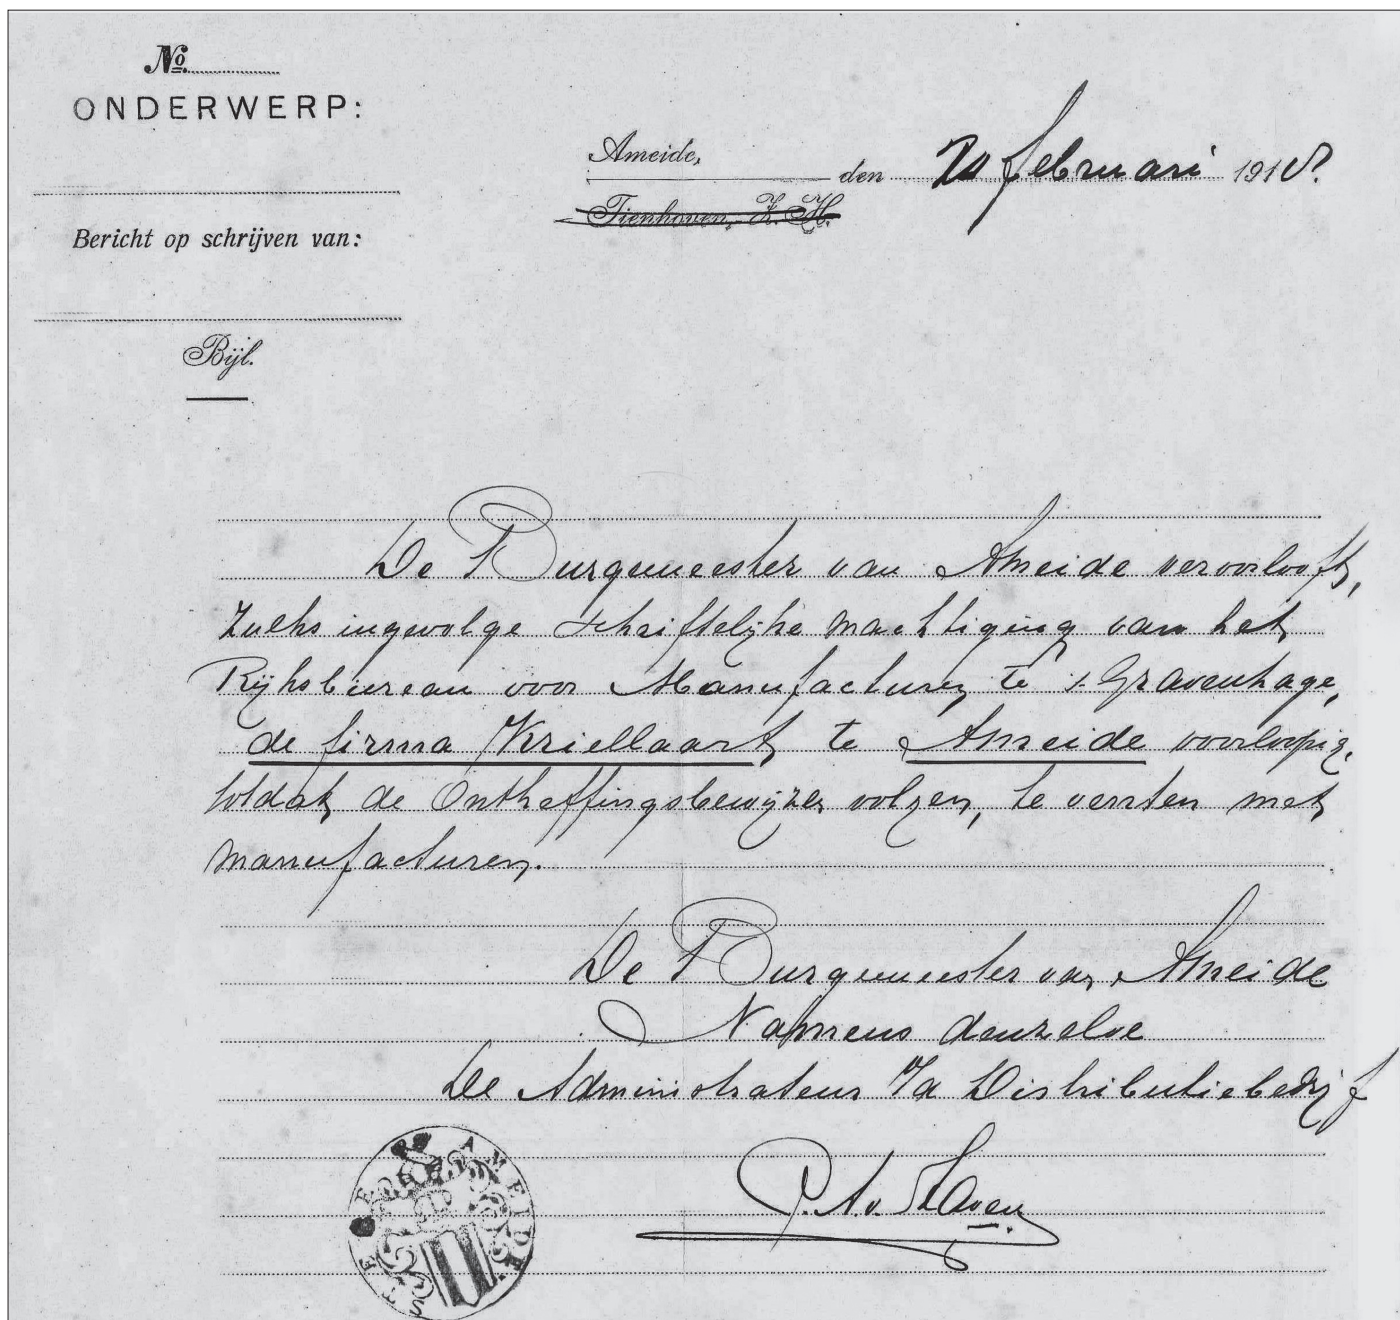 No.
ONDERWERP:
Ameide,
den februari 1918.
Tienhoven, Z. H.
Bericht op schrijven van:
Bijl.
De Burgemeester van Ameide veroorlooft,
zulks ingevolge schriftelijke machtiging van het
Rijksbureau voor Manufacturen te s Gravenhage,
de firma Kriellaart te Ameide voorloopig,
totdat de Ontheffingsbewijzen volgen, te venten met
manufacturen.
De Burgemeester van Ameide
Namens denzelve
De Administrateur v/d Distributiebedrijf
P. A. v.
AMEIDE.